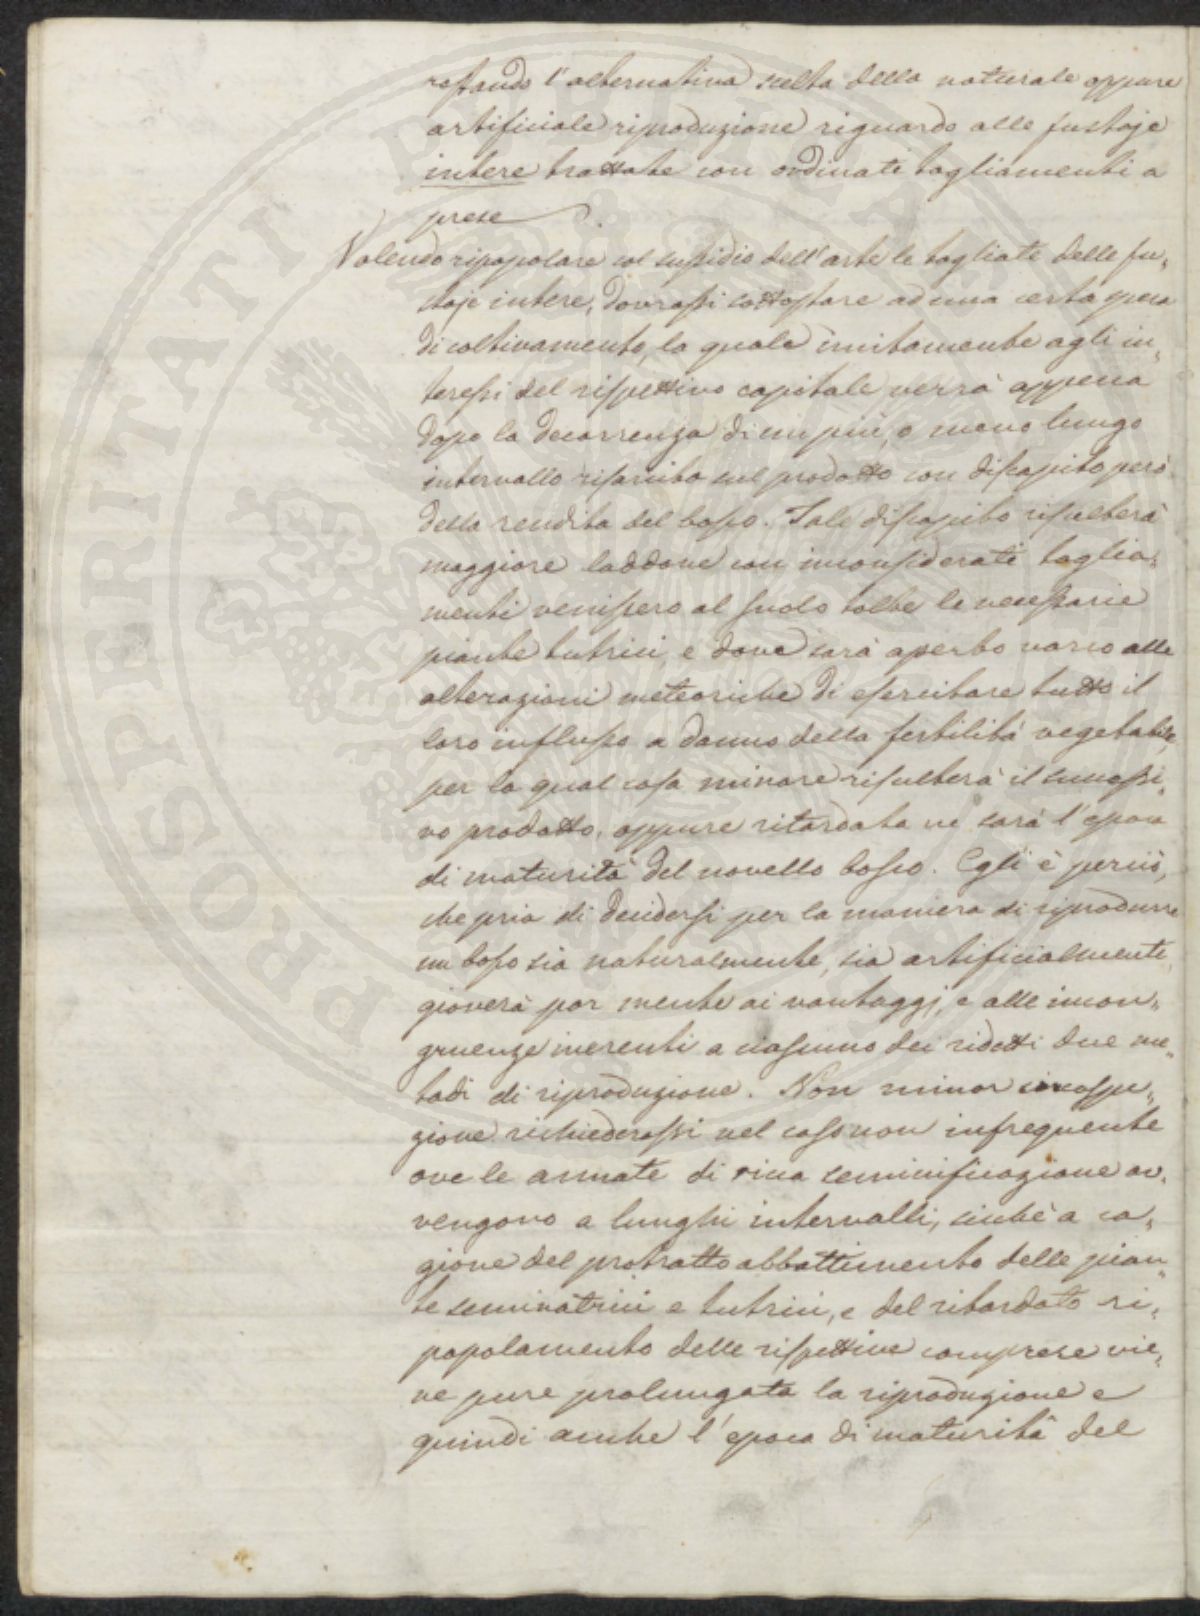 restando l'alternativa scelta della naturale oppure
artificiale riproduzione riguardo alle fustaje
intere trattate con ordinati tagliamenti a
prese.
Volendo ripopolare col sussidio dell'arte le tagliate delle fu„
staje intere, dovrassi sottostare ad una certa spesa
di coltivamento, la quale unitamente agli in„
teressi del rispettivo capitale verrà appena
dopo la decorrenza di un più, o meno lungo
intervallo risarcita sul prodotto con discapito però
della rendita del bosco. Tale discapito risulterà
maggiore laddove con inconsiderati taglia„
menti venissero al suolo tolte le necessarie
piante tutrici, e dove sarà aperto varco alle
alterazioni meteoriche di esercitare tutto il
loro influsso a danno della fertilità vegetabile,
per la qual cosa minore risulterà il successi„
vo prodotto, oppure ritardata ne sarà l'epoca
di maturità del novello bosco. Egli è perciò,
che pria di decidersi per la maniera di riprodurre
un bosco sia naturalmente, sia artificialmente,
gioverà por mente ai vantaggj, e alle incon„
gruenze inerenti a ciascuno dei ridetti due me„
todi di riproduzione. Non minor circospe„
zione richiederassi nel caso non infrequente
ove le annate di ricca seminificazione av„
vengono a lunghi intervalli, sicchè a ca„
gione del protratto abbattimento delle pian„
te seminatrici e tutrici, e del ritardato ri„
popolamento delle rispettive comprese vie„
ne pure prolungata la riproduzione e
quindi anche l'epoca di maturità del
PROSPERITATI PUBLICAE